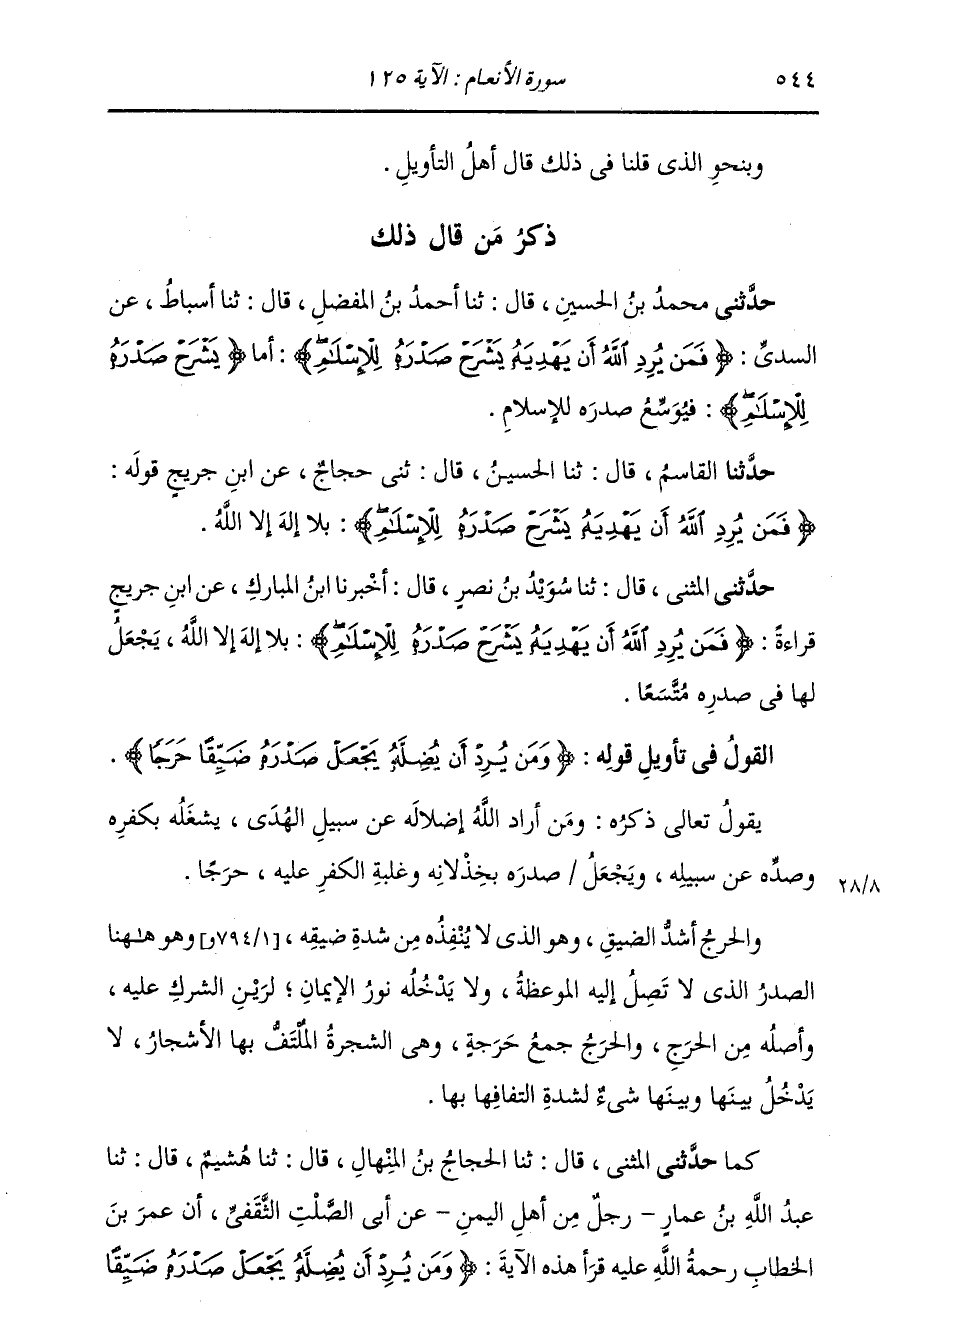 ٥٤٤ سورة الأنعام : الآية ١٢٥
وبنحوِ الذى قلنا فى ذلك قال أهلُ التأويلِ .
ذكرُ مَن قال ذلك
حدَّثنى محمدُ بنُ الحسينِ ، قال : ثنا أحمدُ بنُ المفضلِ ، قال : ثنا أسباطُ ، عن
السدىِّ : ﴿ فَمَن يُرِدِ ٱللَّهُ أَن يَهْدِيَهُۥ يَشْرَحْ صَدْرَهُۥ لِلْإِسْلَٰمِۖ ﴾ : أما ﴿ يَشْرَحْ صَدْرَهُۥ
لِلْإِسْلَٰمِۖ ﴾ : فيُوَسِّعُ صدرَه للإسلامِ .
حدَّثنا القاسمُ ، قال : ثنا الحسينُ ، قال : ثنى حجاجٌ ، عن ابنِ جريجٍ قولَه :
﴿ فَمَن يُرِدِ ٱللَّهُ أَن يَهْدِيَهُۥ يَشْرَحْ صَدْرَهُۥ لِلْإِسْلَٰمِۖ ﴾ : بلا إلهَ إلا اللَّهُ .
حدَّثنى المثنى ، قال : ثنا سُوَيْدُ بنُ نصرٍ ، قال : أخْبرنا ابنُ المباركِ ، عن ابنِ جريجٍ
قراءةً : ﴿ فَمَن يُرِدِ ٱللَّهُ أَن يَهْدِيَهُۥ يَشْرَحْ صَدْرَهُۥ لِلْإِسْلَٰمِۖ ﴾ : بلا إلهَ إلا اللَّهُ ، يَجْعَلُ
لها فى صدرِه مُتَّسَعًا .
القولُ فى تأويلِ قولِه : ﴿ وَمَن يُرِدْ أَن يُضِلَّهُۥ يَجْعَلْ صَدْرَهُۥ ضَيِّقًا حَرَجًا ﴾ .
يقولُ تعالى ذكرُه : ومَن أراد اللَّهُ إضلالَه عن سبيلِ الهُدَى ، يشغَلُه بكفرِه
وصدِّه عن سبيلِه ، ويَجْعَلُ / صدرَه بخِذْلانِه وغلبةِ الكفرِ عليه ، حرَجًا . ٢٨/٨
والحرجُ أشدُّ الضيقِ ، وهو الذى لا يُنْفِذُه مِن شدةِ ضيقِه ، [٧٩٤/١و] وهو هلهنا
الصدرُ الذى لا تَصِلُ إليه الموعظةُ ، ولا يَدْخُلُه نورُ الإيمانِ ؛ لرَيْنِ الشركِ عليه ،
وأصلُه مِن الحرَجِ ، والحرَجُ جمعُ حَرَجةٍ ، وهى الشجرةُ المُلْتَفُّ بها الأشجارُ ، لا
يَدْخُلُ بينَها وبينَها شىءٌ لشدةِ التفافِها بها .
كما حدَّثنى المثنى ، قال : ثنا الحجاجُ بنُ المِنْهالِ ، قال : ثنا هُشيمٌ ، قال : ثنا
عبدُ اللَّهِ بنُ عمارٍ - رجلٌ مِن أهلِ اليمنِ - عن أبى الصَّلْتِ الثَّقَفىِّ ، أن عمرَ بنَ
الخطابِ رحمةُ اللَّهِ عليه قرَأ هذه الآيةَ : ﴿ وَمَن يُرِدْ أَن يُضِلَّهُۥ يَجْعَلْ صَدْرَهُۥ ضَيِّقًا